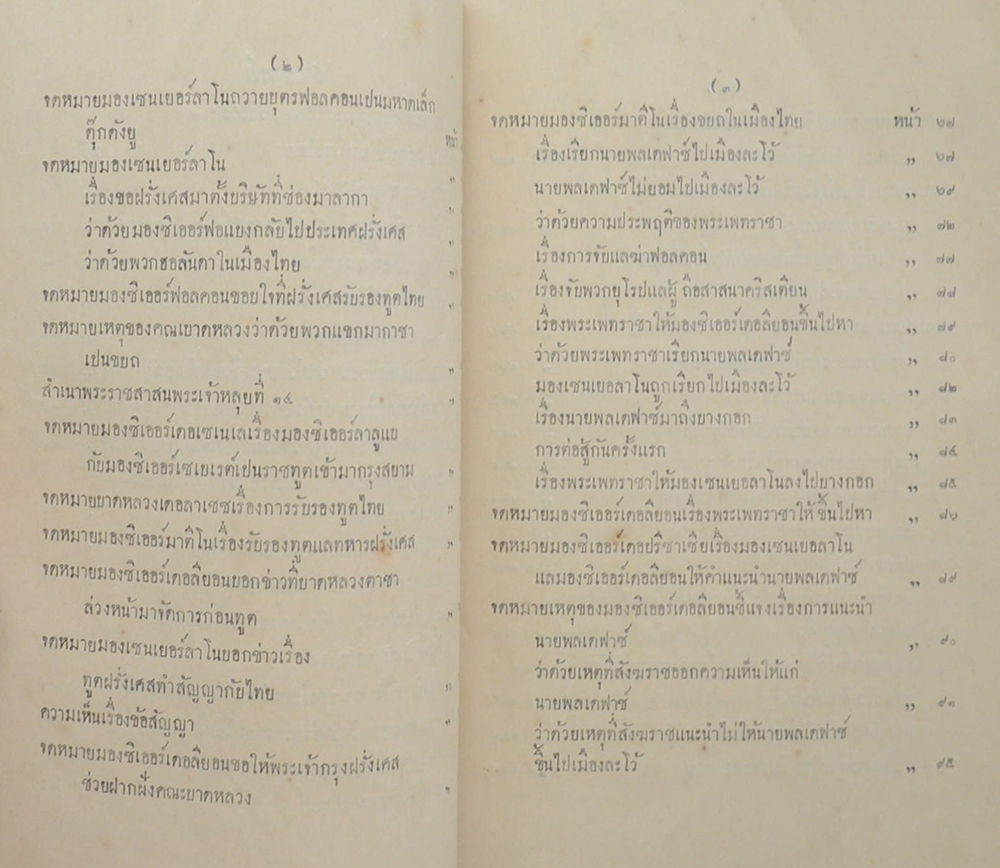 ( ๒ )
จดหมายมองเซนเยอร์ลาโนถวายบุตรฟอลคอนเปนมหาดเล็ก
ดุ๊กดังยู
หน้า
จดหมายมองเซนเยอร์ลาโน
เรื่องขอฝรั่งเศสมาตั้งบริษัทที่ช่องมาลากา
ว่าด้วยมองซิเออร์ฟอแบงกลับไปประเทศฝรั่งเศส
ว่าด้วยพวกฮอลันดาในเมืองไทย
จดหมายมองซิเออร์ฟอลคอนขอบใจที่ฝรั่งเศสรับรองทูตไทย
จดหมายเหตุของคณะบาดหลวงว่าด้วยพวกแขกมากาซา
เปนขบถ
สำเนาพระราชสาสนพระเจ้าหลุยที่ ๑๔
จดหมายมองซิเออร์เดอเซเนเลเรื่องมองซิเออร์ลาลูแบ
กับมองซิเออร์เซเบเรต์เปนราชทูตเข้ามากรุงสยาม
จดหมายบาดหลวงเดอลาเชซเรื่องการรับรองทูตไทย
จดหมายมองซิเออร์มาติโนเรื่องรับรองทูตแลทหารฝรั่งเศส
จดหมายมองซิเออร์เดอลิยอนบอกข่าวที่บาดหลวงตาชา
ล่วงหน้ามาจัดการก่อนทูต
จดหมายมองเซนเยอร์ลาโนบอกข่าวเรื่อง
ทูตฝรั่งเศสทำสัญญากับไทย
ความเห็นเรื่องข้อสัญญา
จดหมายมองซิเออร์เดอลิยอนขอให้พระเจ้ากรุงฝรั่งเศส
ช่วยฝากฝังคณะบาดหลวง
( ๓ )
จดหมายมองซิเออร์มาติโนเรื่องขบถในเมืองไทย หน้า ๖๗
เรื่องเรียกนายพลเดฟาซ์ไปเมืองละโว้ ,, ๖๗
นายพลเดฟาซ์ไม่ยอมไปเมืองละโว้ ,, ๖๙
ว่าด้วยความประพฤติของพระเพทราชา ,, ๗๒
เรื่องการจับแลฆ่าฟอลคอน ,, ๗๗
เรื่องจับพวกยุโรปแลผู้ถือสาสนาคริสเตียน ,, ๗๘
เรื่องพระเพทราชาให้มองซิเออร์เดอลิยอนขึ้นไปหา ,, ๗๙
ว่าด้วยพระเพทราชาเรียกนายพลเดฟาซ์ ,, ๘๐
มองเซนเยอลาโนถูกเรียกไปเมืองละโว้ ,, ๘๒
เรื่องนายพลเดฟาซ์มาถึงบางกอก ,, ๘๓
การต่อสู้กันครั้งแรก ,, ๘๔
เรื่องพระเพทราชาให้มองเซนเยอลาโนลงไปบางกอก ,, ๘๕
จดหมายมองซิเออร์เดอลิยอนเรื่องพระเพทราชาให้ขึ้นไปหา ,, ๘๖
จดหมายมองซิเออร์เดอบริซาเซียเรื่องมองเซนเยอลาโน
แลมองซิเออร์เดอลิยอนให้คำแนะนำนายพลเดฟาซ์ ,, ๘๙
จดหมายเหตุของมองซิเออร์เดอลิยอนชี้แจงเรื่องการแนะนำ
นายพลเดฟาซ์ ,, ๙๐
ว่าด้วยเหตุที่สังฆราชออกความเห็นให้แก่
นายพลเดฟาซ์ ,, ๙๑
ว่าด้วยเหตุที่สังฆราชแนะนำไม่ให้นายพลเดฟาซ์
ขึ้นไปเมืองละโว้ ,, ๙๕